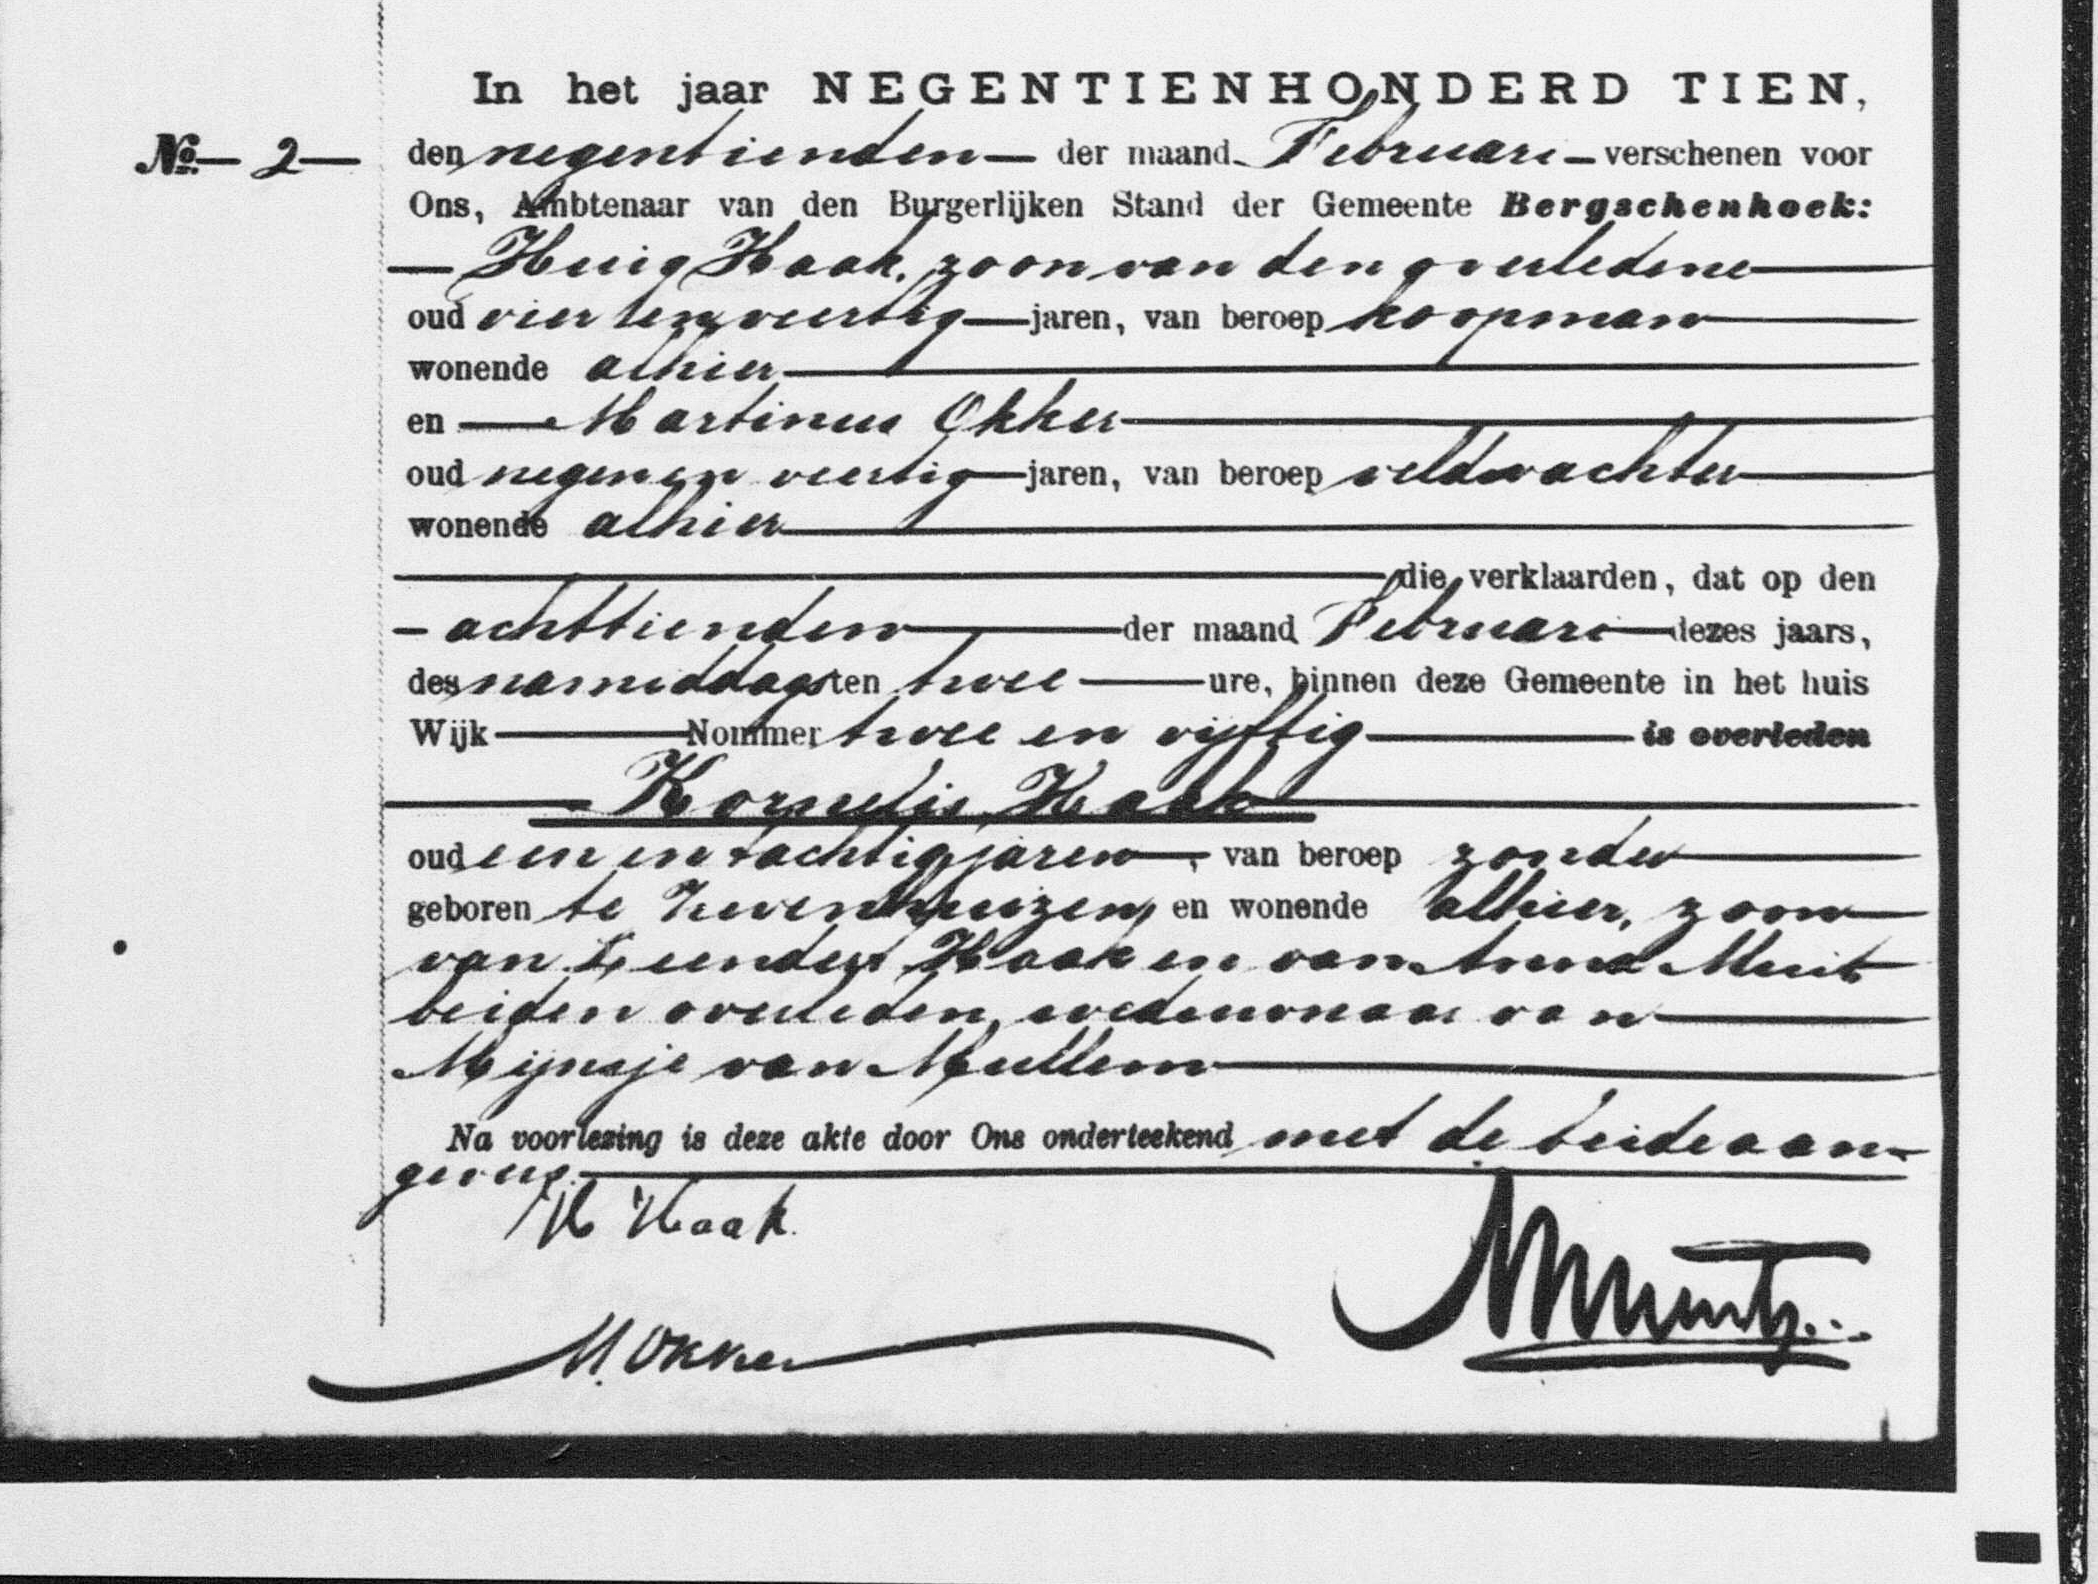 In het jaar NEGENTIENHONDERD TIEN,
No. 2 den negentienden der maand Februari verschenen voor
Ons, Ambtenaar van den Burgerlijken Stand der Gemeente Bergschenhoek:
Huig Haak, zoon van den overledene
oud vier en veertig jaren, van beroep koopman
wonende alhier
en Martinus Okker
oud negen en veertig jaren, van beroep veldwachter
wonende alhier
die verklaarden, dat op den
achttienden der maand Februari dezes jaars,
des namiddags ten twee ure, binnen deze Gemeente in het huis
Wijk Nommer twee en vijftig is overleden
Kornelis Haak
oud een en tachtig jaren, van beroep zonder
geboren te Zevenhuizen, en wonende alhier, zoon
van Leendert Haak en van Anna
beiden overleden, weduwnaar van
Mijnsje van Mullem
Na voorlezing is deze akte door Ons onderteekend met de beide aan-
gevers.
H Haak.
M. Okker